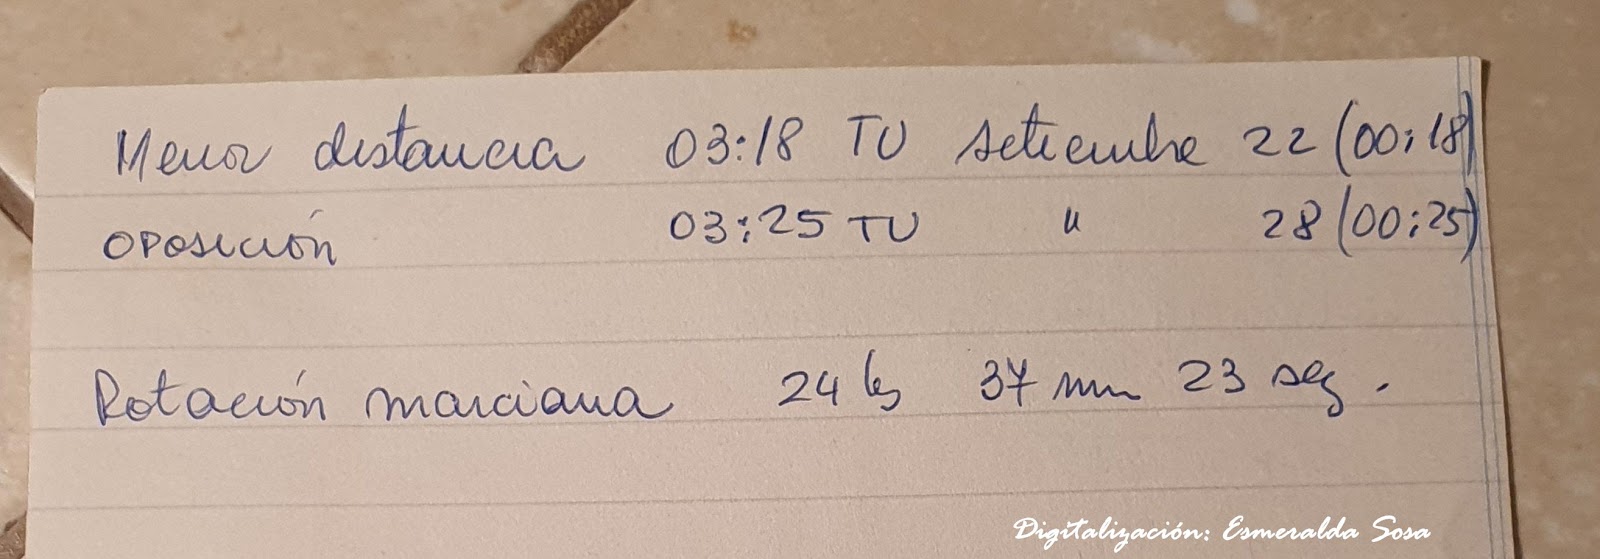 Menor distancia 03:18 TU setiembre 22 (00:18)
OPOSICIÓN 03:25 TU " 28 (00:25)
Rotación marciana 24 hs 37 mn 23 seg.
Digitalización: Esmeralda Sosa